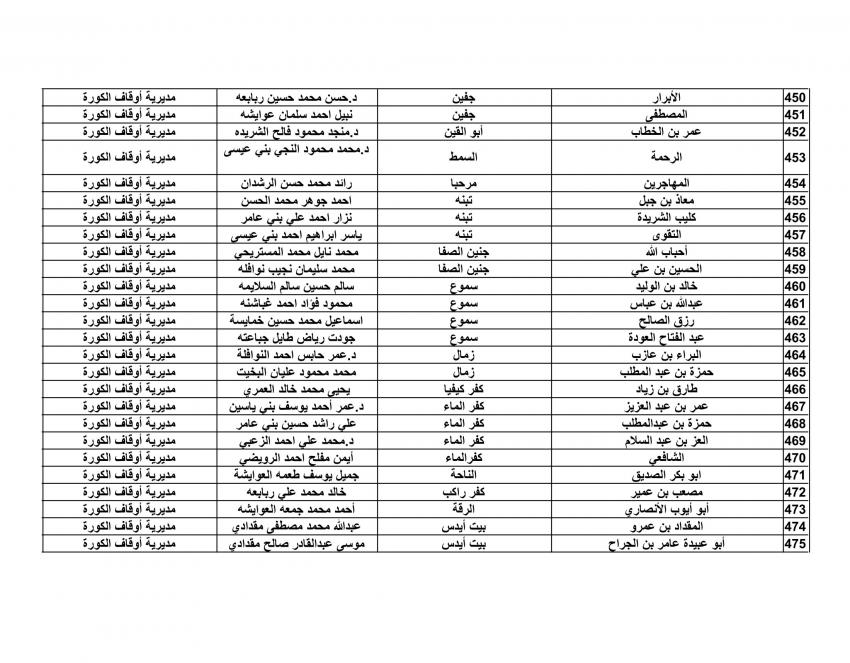 450 الأبرار جفين د.حسن محمد حسين ربابعه مديرية أوقاف الكورة
451 المصطفى جفين نبيل احمد سلمان عوايشه مديرية أوقاف الكورة
452 عمر بن الخطاب أبو القين د.منجد محمود فالح الشريده مديرية أوقاف الكورة
453 الرحمة السمط د.محمد محمود النجي بني عيسى مديرية أوقاف الكورة
454 المهاجرين مرحبا رائد محمد حسن الرشدان مديرية أوقاف الكورة
455 معاذ بن جبل تبنه احمد جوهر محمد الحسن مديرية أوقاف الكورة
456 كليب الشريدة تبنه نزار احمد علي بني عامر مديرية أوقاف الكورة
457 التقوى تبنه ياسر ابراهيم احمد بني عيسى مديرية أوقاف الكورة
458 أحباب الله جنين الصفا محمد نايل محمد المستريحي مديرية أوقاف الكورة
459 الحسين بن علي جنين الصفا محمد سليمان نجيب نوافله مديرية أوقاف الكورة
460 خالد بن الوليد سموع سالم حسين سالم السلايمه مديرية أوقاف الكورة
461 عبدالله بن عباس سموع محمود فؤاد احمد غباشنه مديرية أوقاف الكورة
462 رزق الصالح سموع اسماعيل محمد حسين خمايسة مديرية أوقاف الكورة
463 عبد الفتاح العودة سموع جودت رياض طايل جباعته مديرية أوقاف الكورة
464 البراء بن عازب زمال د.عمر حابس احمد النوافلة مديرية أوقاف الكورة
465 حمزة بن عبد المطلب زمال محمد محمود عليان البخيت مديرية أوقاف الكورة
466 طارق بن زياد كفر كيفيا يحيى محمد خالد العمري مديرية أوقاف الكورة
467 عمر بن عبد العزيز كفر الماء د.عمر أحمد يوسف بني ياسين مديرية أوقاف الكورة
468 حمزة بن عبدالمطلب كفر الماء علي راشد حسين بني عامر مديرية أوقاف الكورة
469 العز بن عبد السلام كفر الماء د.محمد علي احمد الزعبي مديرية أوقاف الكورة
470 الشافعي كفرالماء أيمن مفلح احمد الرويضي مديرية أوقاف الكورة
471 ابو بكر الصديق الناحة جميل يوسف طعمه العوايشة مديرية أوقاف الكورة
472 مصعب بن عمير كفر راكب خالد محمد علي ربابعه مديرية أوقاف الكورة
473 أبو أيوب الأنصاري الرقة أحمد محمد جمعه العوايشه مديرية أوقاف الكورة
474 المقداد بن عمرو بيت أيدس عبدالله محمد مصطفى مقدادي مديرية أوقاف الكورة
475 أبو عبيدة عامر بن الجراح بيت أيدس موسى عبدالقادر صالح مقدادي مديرية أوقاف الكورة